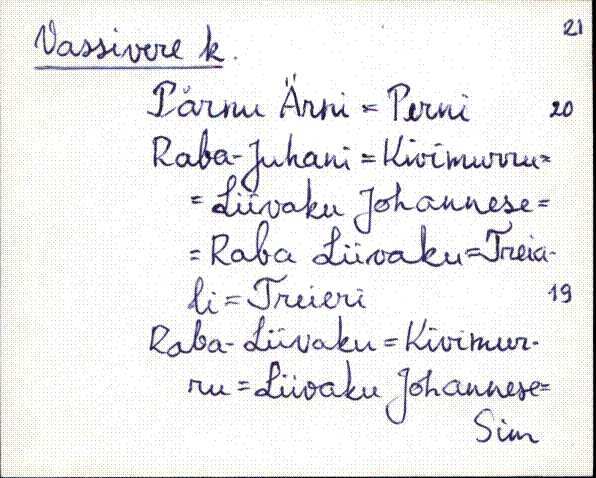 21
Vassivere k.
Pärnu Ärni = Perni 20
Raba-Juhani = Kivimurru=
= Liivaku Johannese =
= Raba Liivaku = Treia-
li = Treieri 19
Raba-Liivaku = Kivimur-
ru = Liivaku Johannese=
Sim